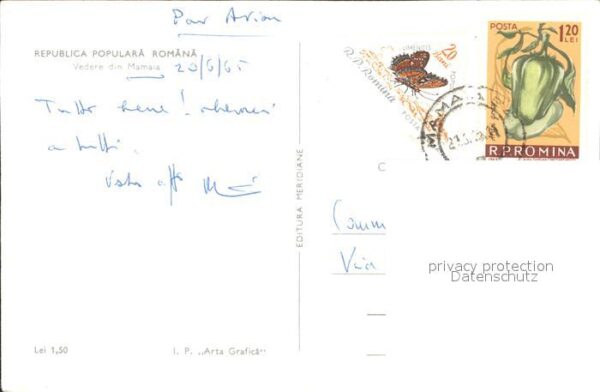 Par Avion
REPUBLICA POPULARĂ ROMÂNĂ
Vedere din Mamaia
20/6/65
Tutto bene!
a tutti.
20
Bani
R.P. Romina
POSTA
POSTA
1,20
LEI
R.P.ROMINA
MAMAIA
EDITURA MERIDIANE
C
Comm
Via
privacy protection
Datenschutz
Lei 1,50
I. P. „Arta Grafică“